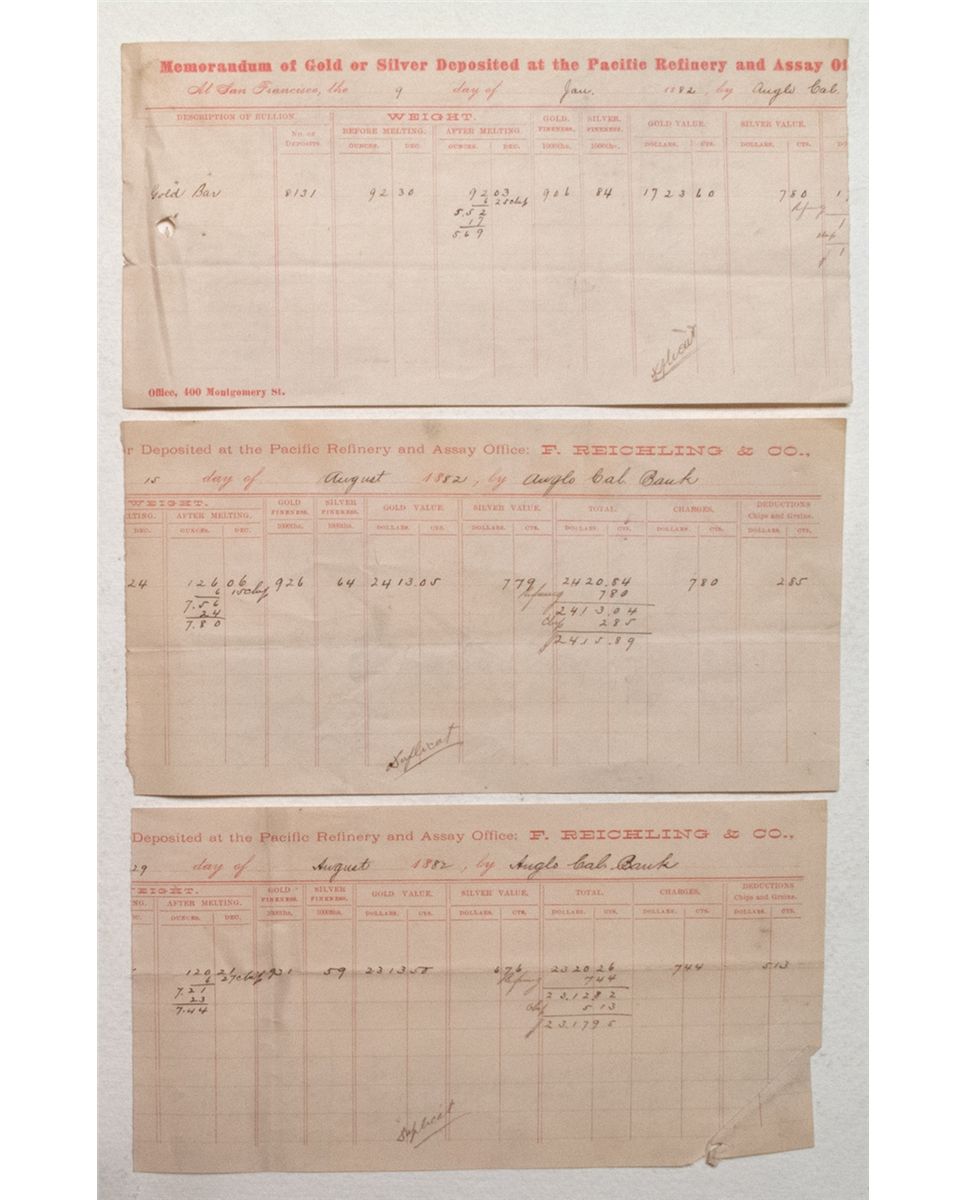 Memorandum of Gold or Silver Deposited at the Pacific Refinery and Assay Of
At San Francisco, the 9 day of Jan. 1882, by Anglo Cal.
DESCRIPTION OF BULLION. WEIGHT. GOLD. SILVER. GOLD VALUE. SILVER VALUE.
No. OF DEPOSITS. BEFORE MELTING. AFTER MELTING. FINENESS. FINENESS.
OUNCES. DEC. OUNCES. DEC. 1000ths. 1000ths. DOLLARS. CTS. DOLLARS. CTS. DO
Gold Bar 8131 92 30 92 03 906 84 1723 60 780 1
6 25 chip
5.52
17
569
Duplicat
Office, 400 Montgomery St.
r Deposited at the Pacific Refinery and Assay Office: F. REICHLING & CO.,
15 day of August 1882, by Anglo Cal. Bank
WEIGHT. GOLD SILVER GOLD VALUE. SILVER VALUE. TOTAL. CHARGES. DEDUCTIONS
LTING. AFTER MELTING. FINENESS. FINENESS. Chips and Grains.
DEC. OUNCES. DEC. 1000ths. 1000ths. DOLLARS. CTS. DOLLARS. CTS. DOLLARS. CTS. DOLLARS. CTS. DOLLARS. CTS.
24 126 06 926 64 2413.05 779 2420.84 780 285
6 15 chip Refining 780
7.56 2413.04
24 Chip 285
7.80 2415.89
Duplicat
Deposited at the Pacific Refinery and Assay Office: F. REICHLING & CO.,
29 day of August 1882, by Anglo Cal. Bank
WEIGHT. GOLD SILVER GOLD VALUE. SILVER VALUE. TOTAL. CHARGES. DEDUCTIONS
NG. AFTER MELTING. FINENESS. FINENESS. Chips and Grains.
OUNCES. DEC. 1000ths. 1000ths. DOLLARS. CTS. DOLLARS. CTS. DOLLARS. CTS. DOLLARS. CTS. DOLLARS. CTS.
120 21 931 59 2313 50 676 2320 26 744 513
6 27 chip Refining 744
7.21 23.1282
23 Chip 513
7.44 23.1795
Duplicat